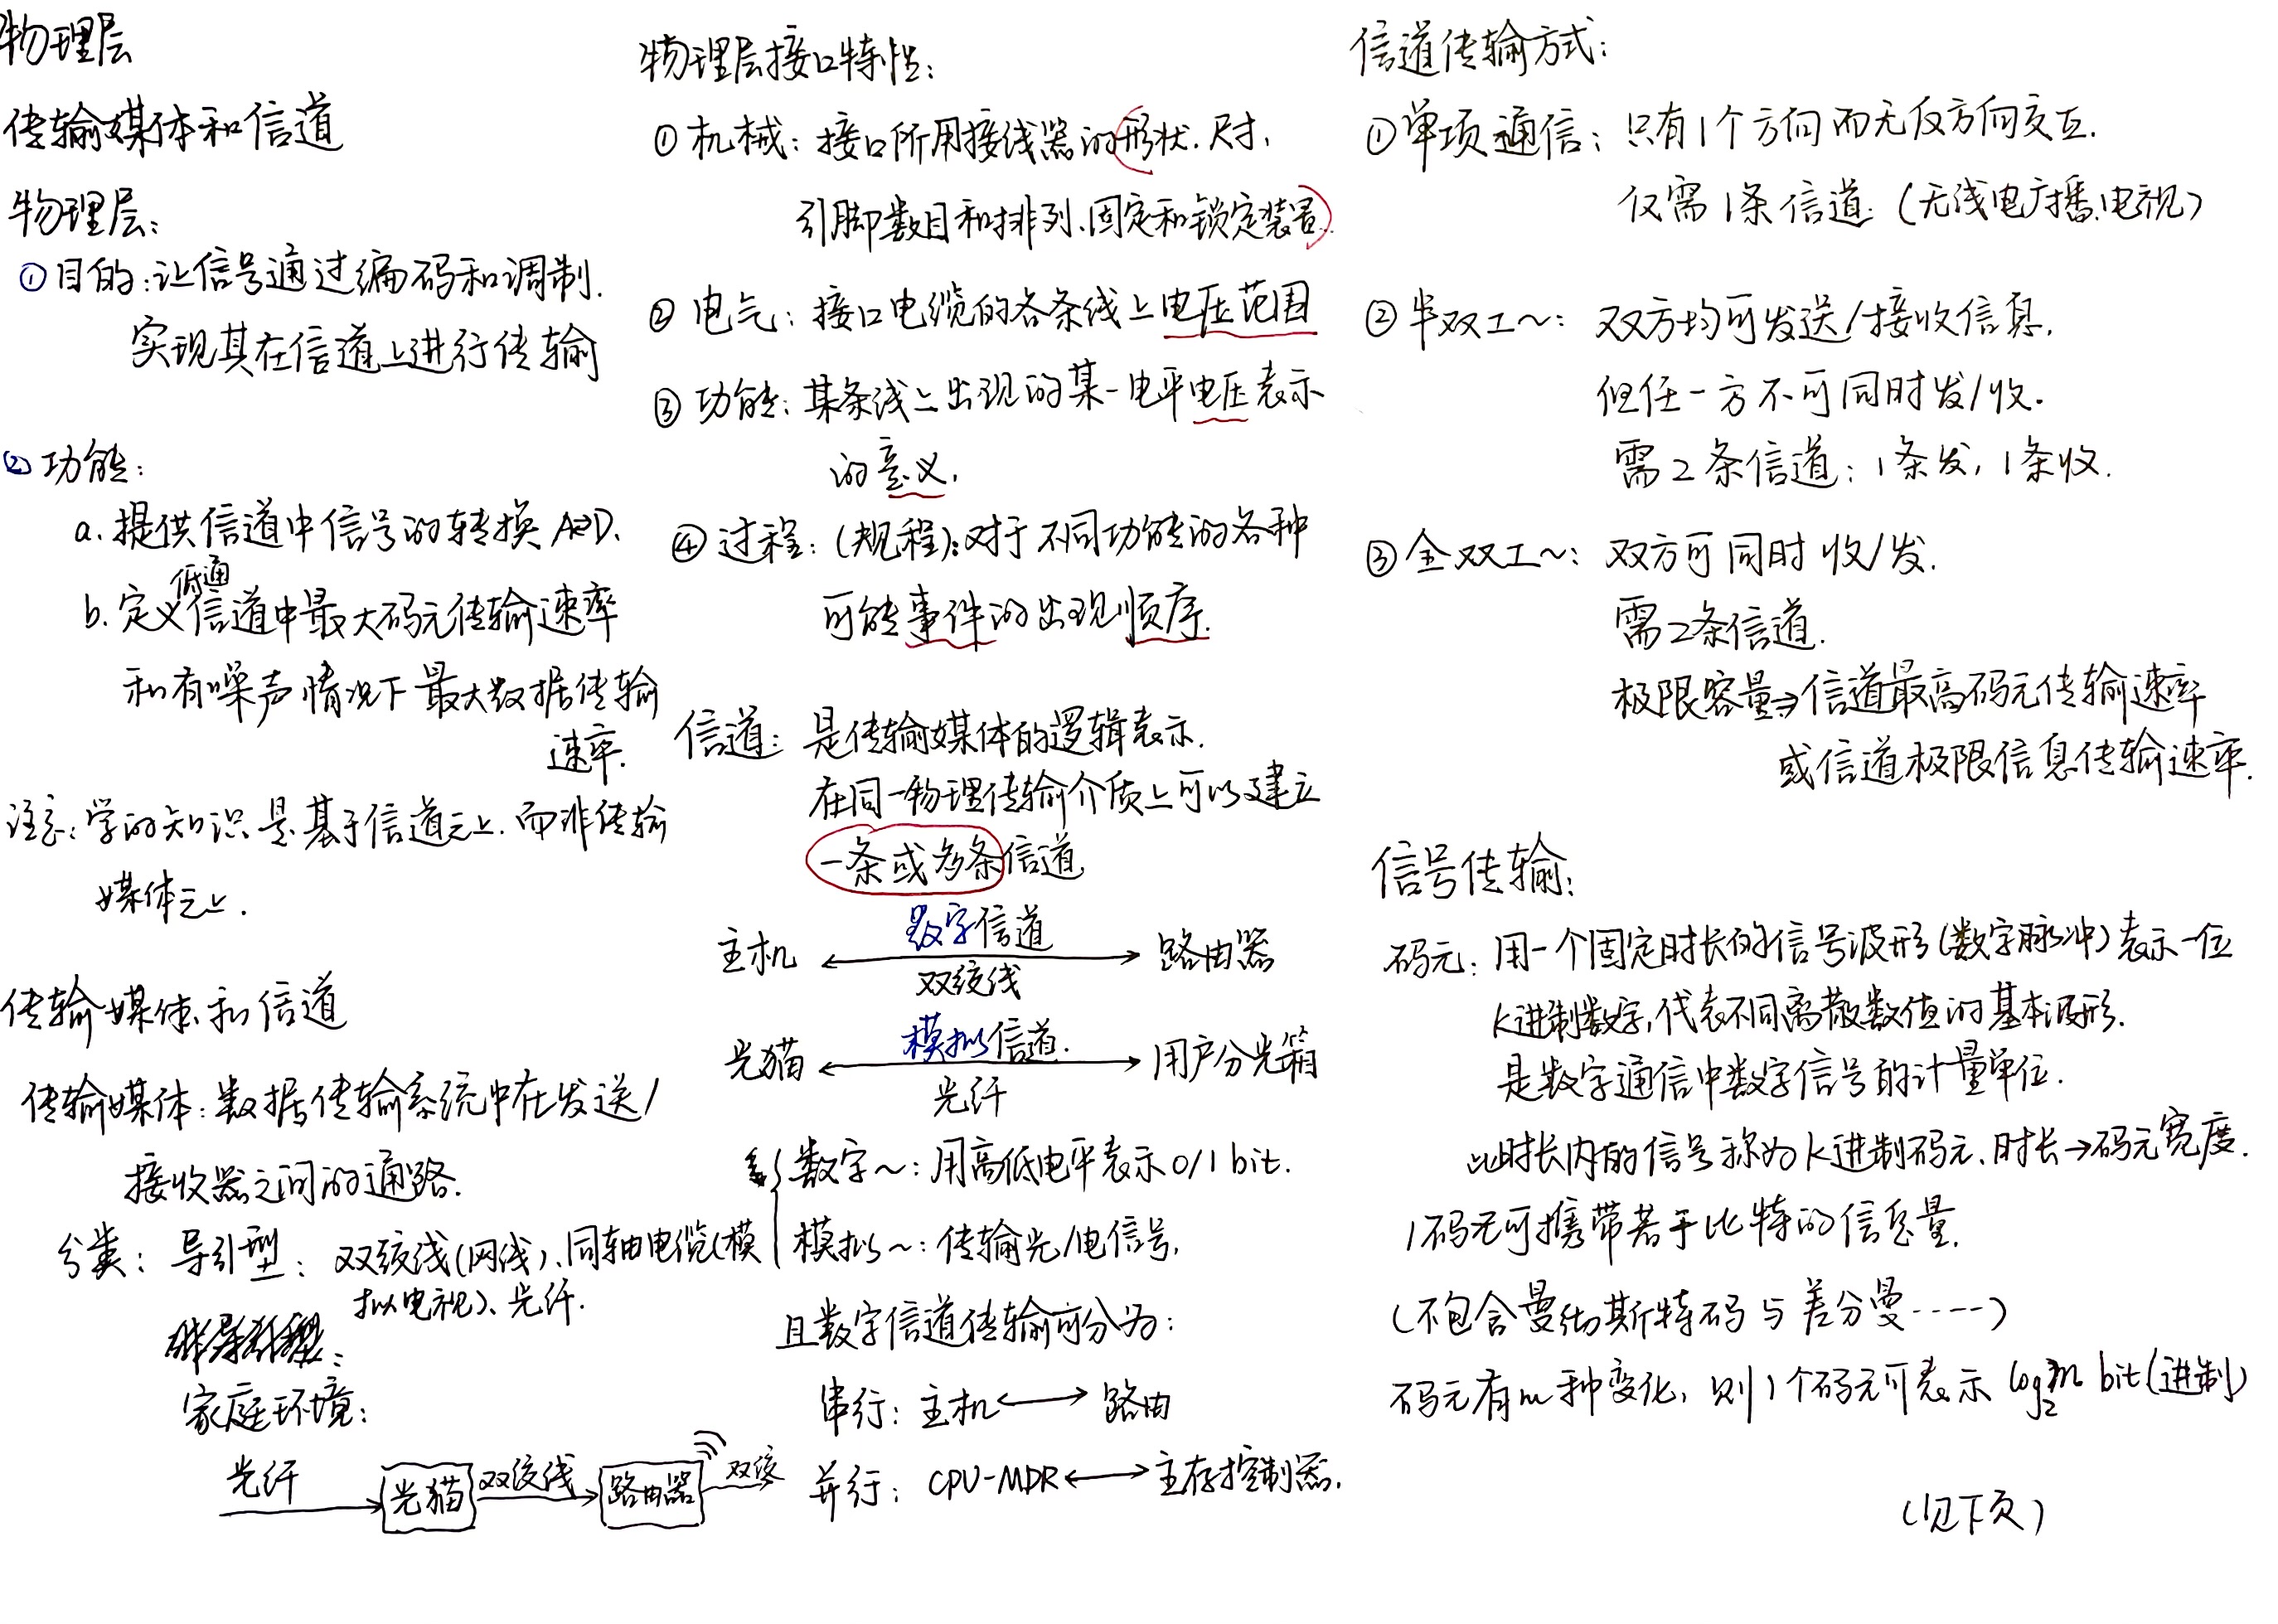 物理层
传输媒体和信道
物理层：
①目的：让信号通过编码和调制.
实现其在信道上进行传输
②功能：
a.提供信道中信号的转换 A⇌D.
低通
b.定义信道中最大码元传输速率
和有噪声情况下最大数据传输
速率.
注意：学的知识是基于信道之上.而非传输
媒体之上.
传输媒体和信道
传输媒体：数据传输系统中在发送/
接收器之间的通路.
分类：导引型：双绞线(网线)、同轴电缆(模
拟电视)、光纤.
家庭环境：
光纤 光猫 双绞线 路由器 双绞
物理层接口特性：
①机械：接口所用接线器的形状.尺寸,
引脚数目和排列、固定和锁定装置..
②电气：接口电缆的各条线上电压范围
③功能：某条线上出现的某一电平电压表示
的意义.
④过程：(规程)：对于不同功能的各种
可能事件的出现顺序.
信道：是传输媒体的逻辑表示.
在同一物理传输介质上可以建立
一条或多条信道.
数字信道
主机 ⟷ 路由器
双绞线
模拟信道.
光猫 ⟷ 用户分光箱
光纤
数字～：用高低电平表示0/1 bit.
模拟～：传输光/电信号,
且数字信道传输可分为：
串行：主机⟷路由
并行：CPU-MDR⟷主存控制器.
信道传输方式：
①单项通信：只有1个方向而无反方向交互.
仅需1条信道.(无线电广播.电视)
②半双工～：双方均可发送/接收信息,
但任一方不可同时发/收.
需2条信道：1条发,1条收.
③全双工～：双方可同时收/发.
需2条信道.
极限容量⇒信道最高码元传输速率
或信道极限信息传输速率.
信号传输：
码元：用一个固定时长的信号波形(数字脉冲)表示一位
k进制数字,代表不同离散数值的基本波形.
是数字通信中数字信号的计量单位.
此时长内的信号称为k进制码元、时长→码元宽度.
1码元可携带若干比特的信息量.
(不包含曼彻斯特码与差分曼-----)
码元有m种变化,则1个码元可表示 log₂m bit(进制)
(见下页)